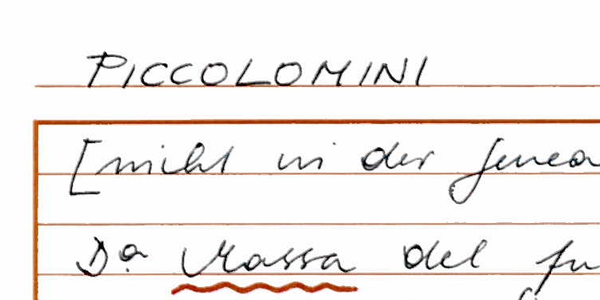 PICCOLOMINI
[nicht in der Genea
Dª Massa del fu